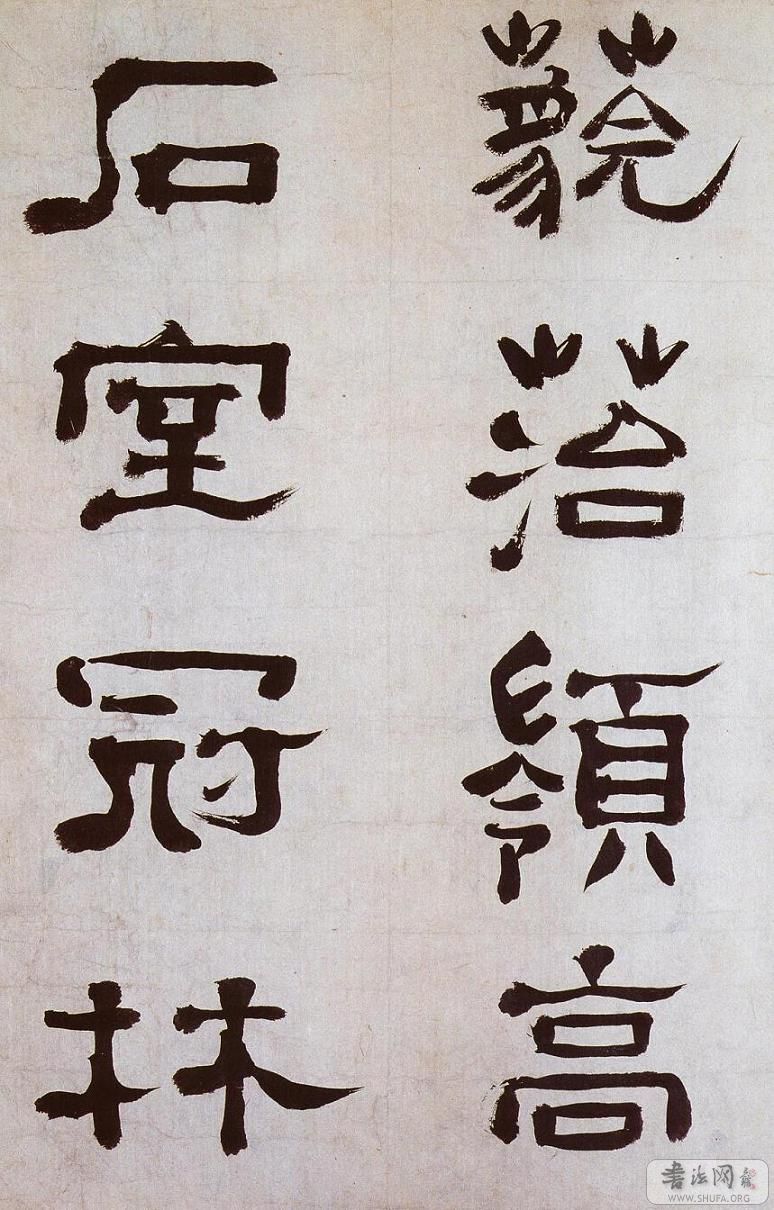 藐菭嶺高
石室冠林
書法网
WWW.SHUFA.ORG